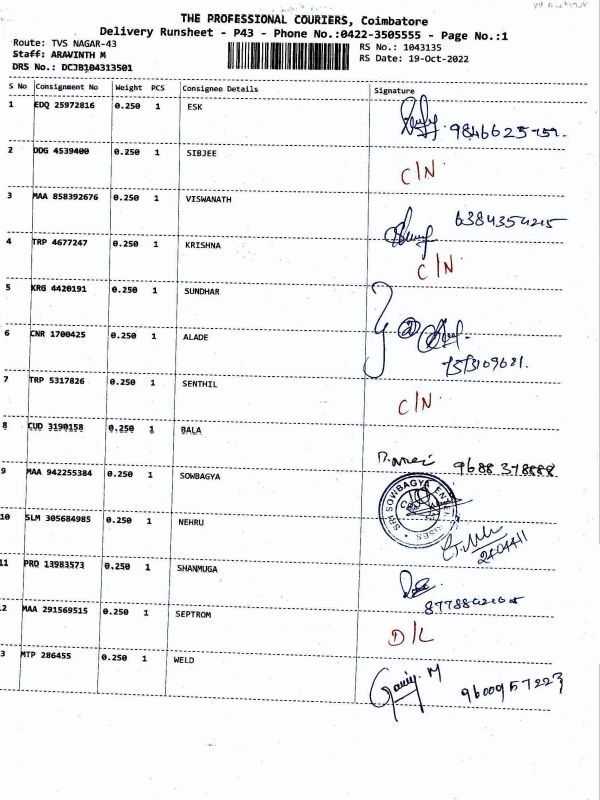 THE PROFESSIONAL COURIERS, Coimbatore
Delivery Runsheet - P43 - Phone No.:0422-3505555 - Page No.:1
Route: TVS NAGAR-43
Staff: ARAVINTH M
DRS No.: DCJB104313501
RS No.: 1043135
RS Date: 19-Oct-2022
S No Consignment No Weight PCS Consignee Details Signature
1 EDQ 25972816 0.250 1 ESK
2 DDG 4539400 0.250 1 SIBJEE C/N
3 MAA 858392676 0.250 1 VISWANATH 6384354215
4 TRP 4677247 0.250 1 KRISHNA C/N
5 KRG 4420191 0.250 1 SUNDHAR
6 CNR 1700425 0.250 1 ALADE
7 TRP 5317826 0.250 1 SENTHIL C/N
8 CUD 3190158 0.250 1 BALA
9 MAA 942255384 0.250 1 SOWBAGYA
SRI SOWBAGYA ENTERPRISES
10 SLM 305684985 0.250 1 NEHRU
11 PRD 13983573 0.250 1 SHANMUGA
2 MAA 291569515 0.250 1 SEPTROM D/L
3 MTP 286455 0.250 1 WELD 9600957223